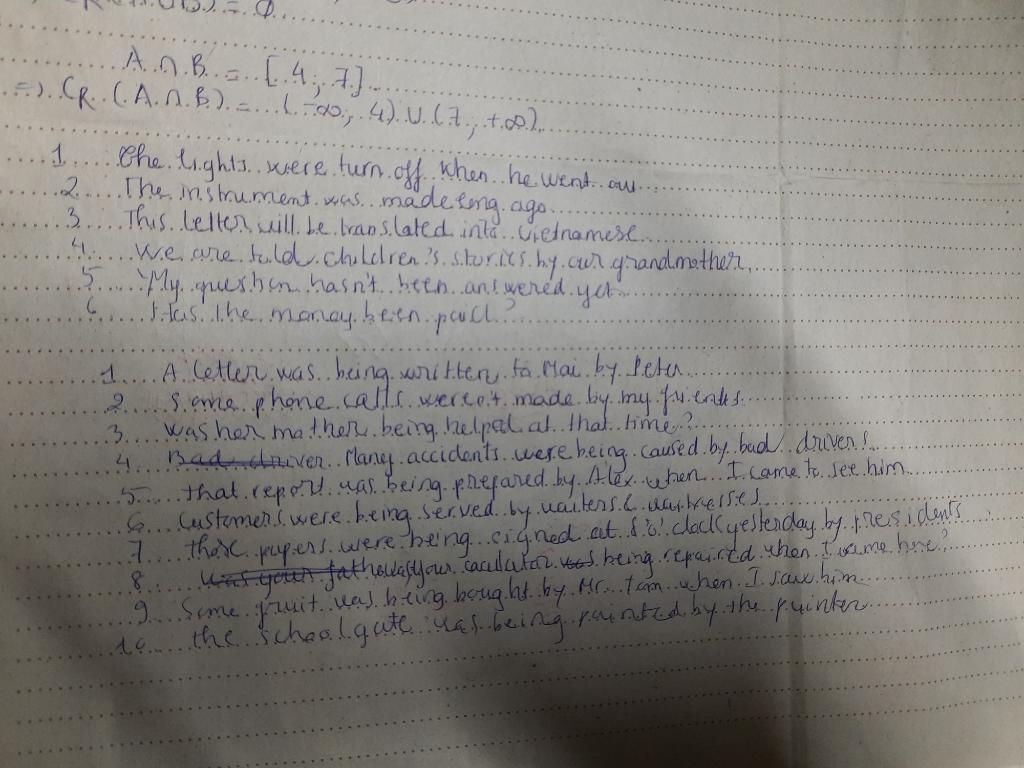 A ∩ B = [4; 7]
=) C_R (A ∩ B) = (-∞; 4) ∪ (7; +∞)
1 The lights were turn off when he went
2 The instrument was made long ago
3 This letter will be translated into Vietnamese
4 We are told children's stories by our grandmother
5 My question hasn't been answered yet
6 Has the money been paid?
1 A letter was being written to Mai by Peter
2 Some phone calls were made by my friends
3 was her mother being helped at that time?
4 Bad driver Many accidents were being caused by bad drivers
5 that report was being prepared by Alex when I came to see him
6 Customers were being served by waiters & waitresses
7 those papers were being signed at 8 o'clock yesterday by presidents
8 was your being repaired when I came here?
9 Some fruit was being bought by Mr. Tam when I saw him
10 the school gate was being painted by the painter